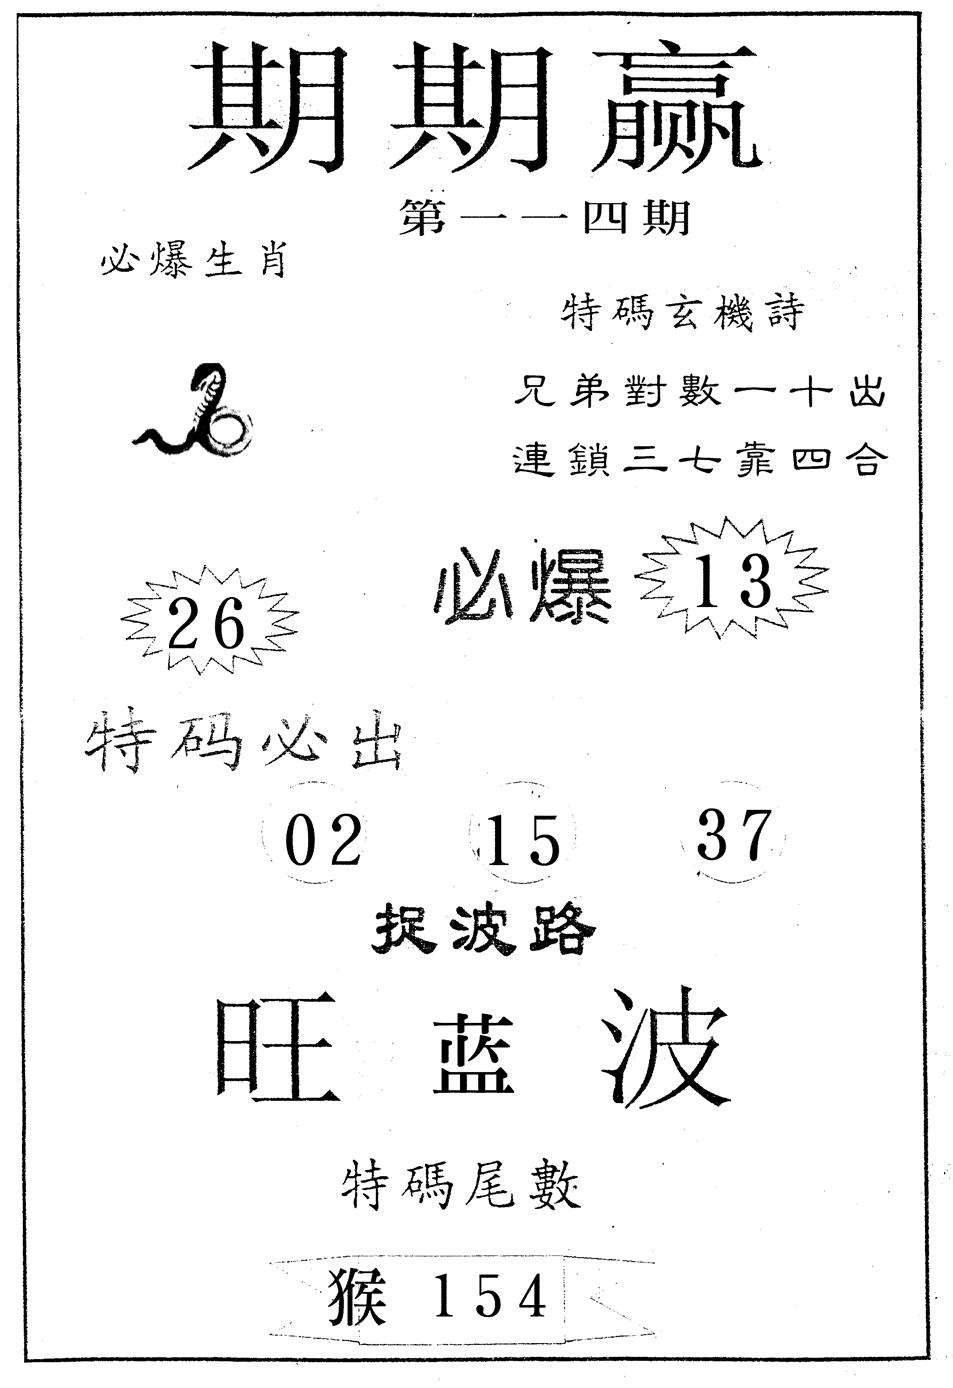 期期赢
第一一四期
必爆生肖
特碼玄機詩
兄弟對數一十出
連鎖三七靠四合
必爆 13
26
特码必出
02 15 37
捉波路
旺蓝波
特碼尾數
猴 154